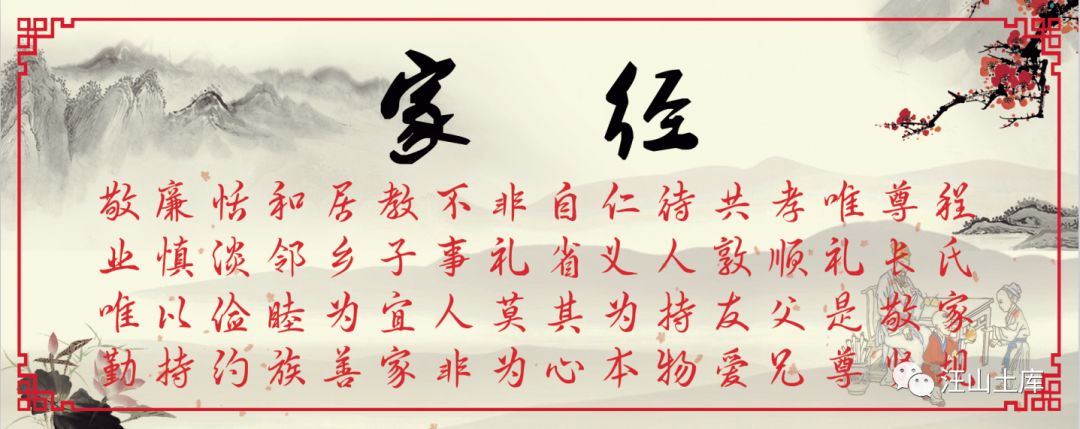 家经
程氏家规
尊长敬
唯礼是尊
孝顺父兄
共敦友爱
待人持物
仁义为本
自省其心
非礼莫为
不事人非
教子宜家
居乡为善
和邻睦族
恬淡俭约
廉慎以持
敬业唯勤
汪山土库